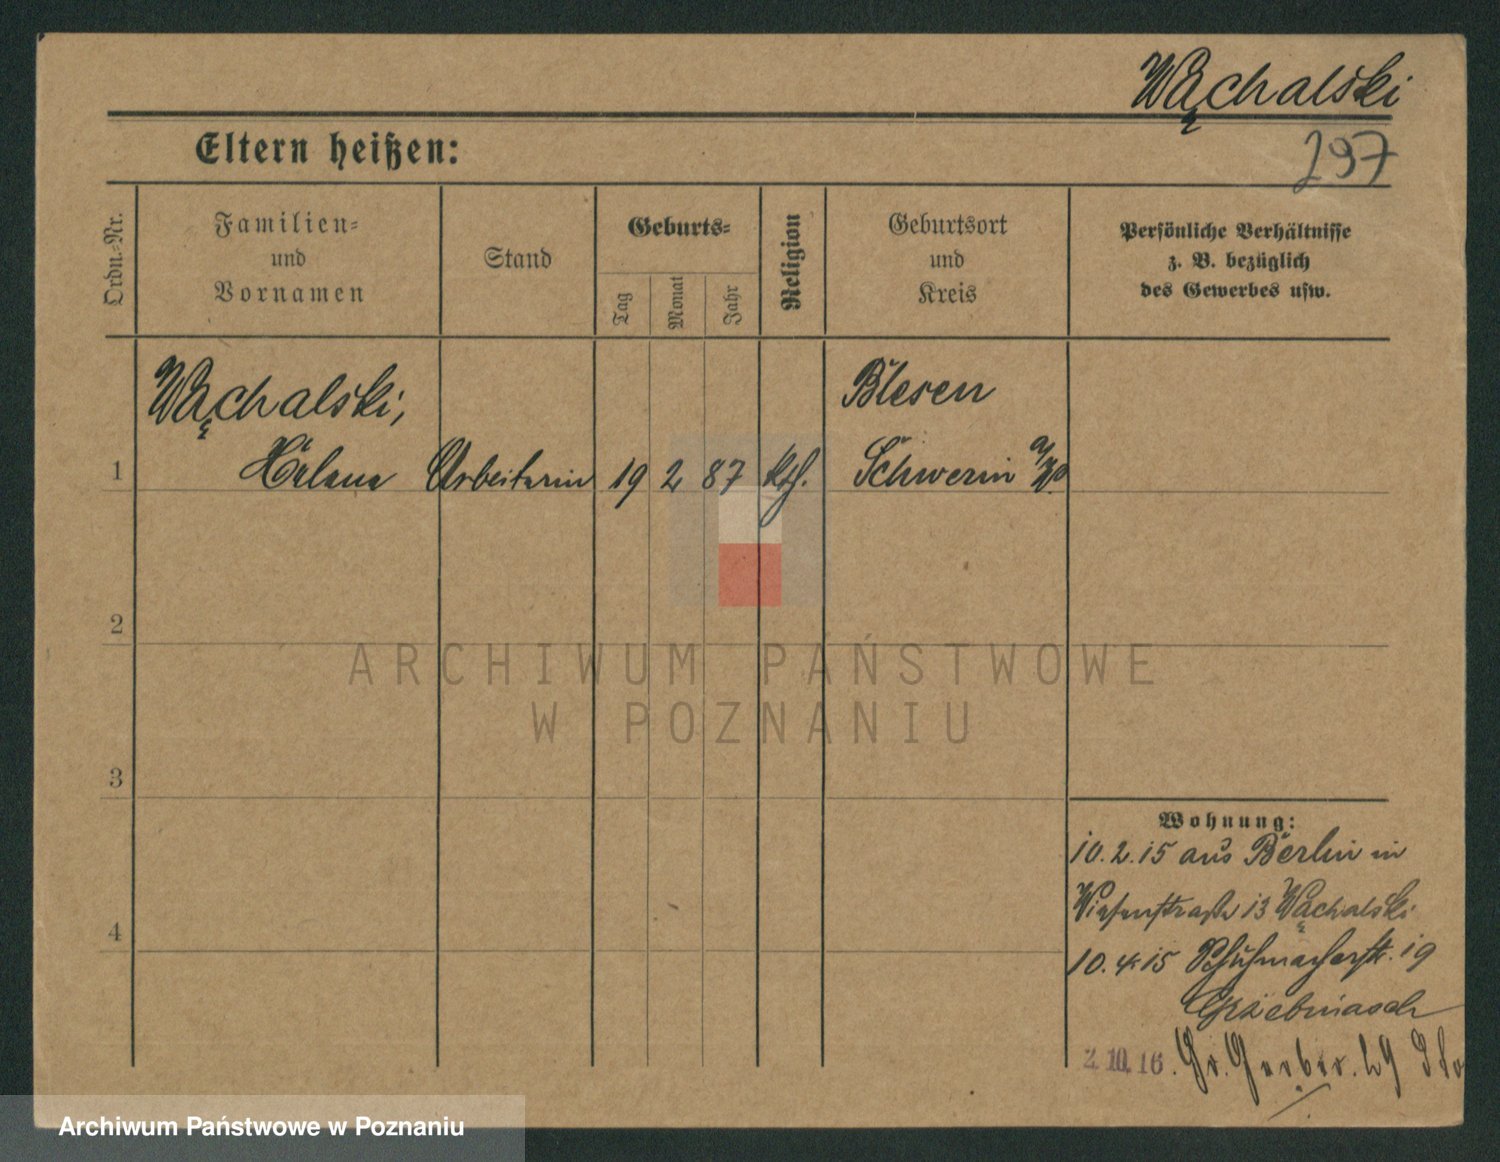 Wąchalski
297
Eltern heißen:
Ordn.-Nr.
Familien-
und
Vornamen
Stand
Geburts-
Tag
Monat
Jahr
Religion
Geburtsort
und
Kreis
Persönliche Verhältnisse
z. B. bezüglich
des Gewerbes usw.
Wąchalski,
Blesen
1 Helene Arbeiterin 19 2 87 kth. Schwerin a/W
2
3
4
Wohnung:
10.2.15 aus Berlin in
Wiesenstraße 13 Wąchalski
10.4.15 Schuhmacherstr. 19
Grzebinasch
2.10.16. Gr. Gerber. 29
ARCHIWUM PAŃSTWOWE
W POZNANIU
Archiwum Państwowe w Poznaniu